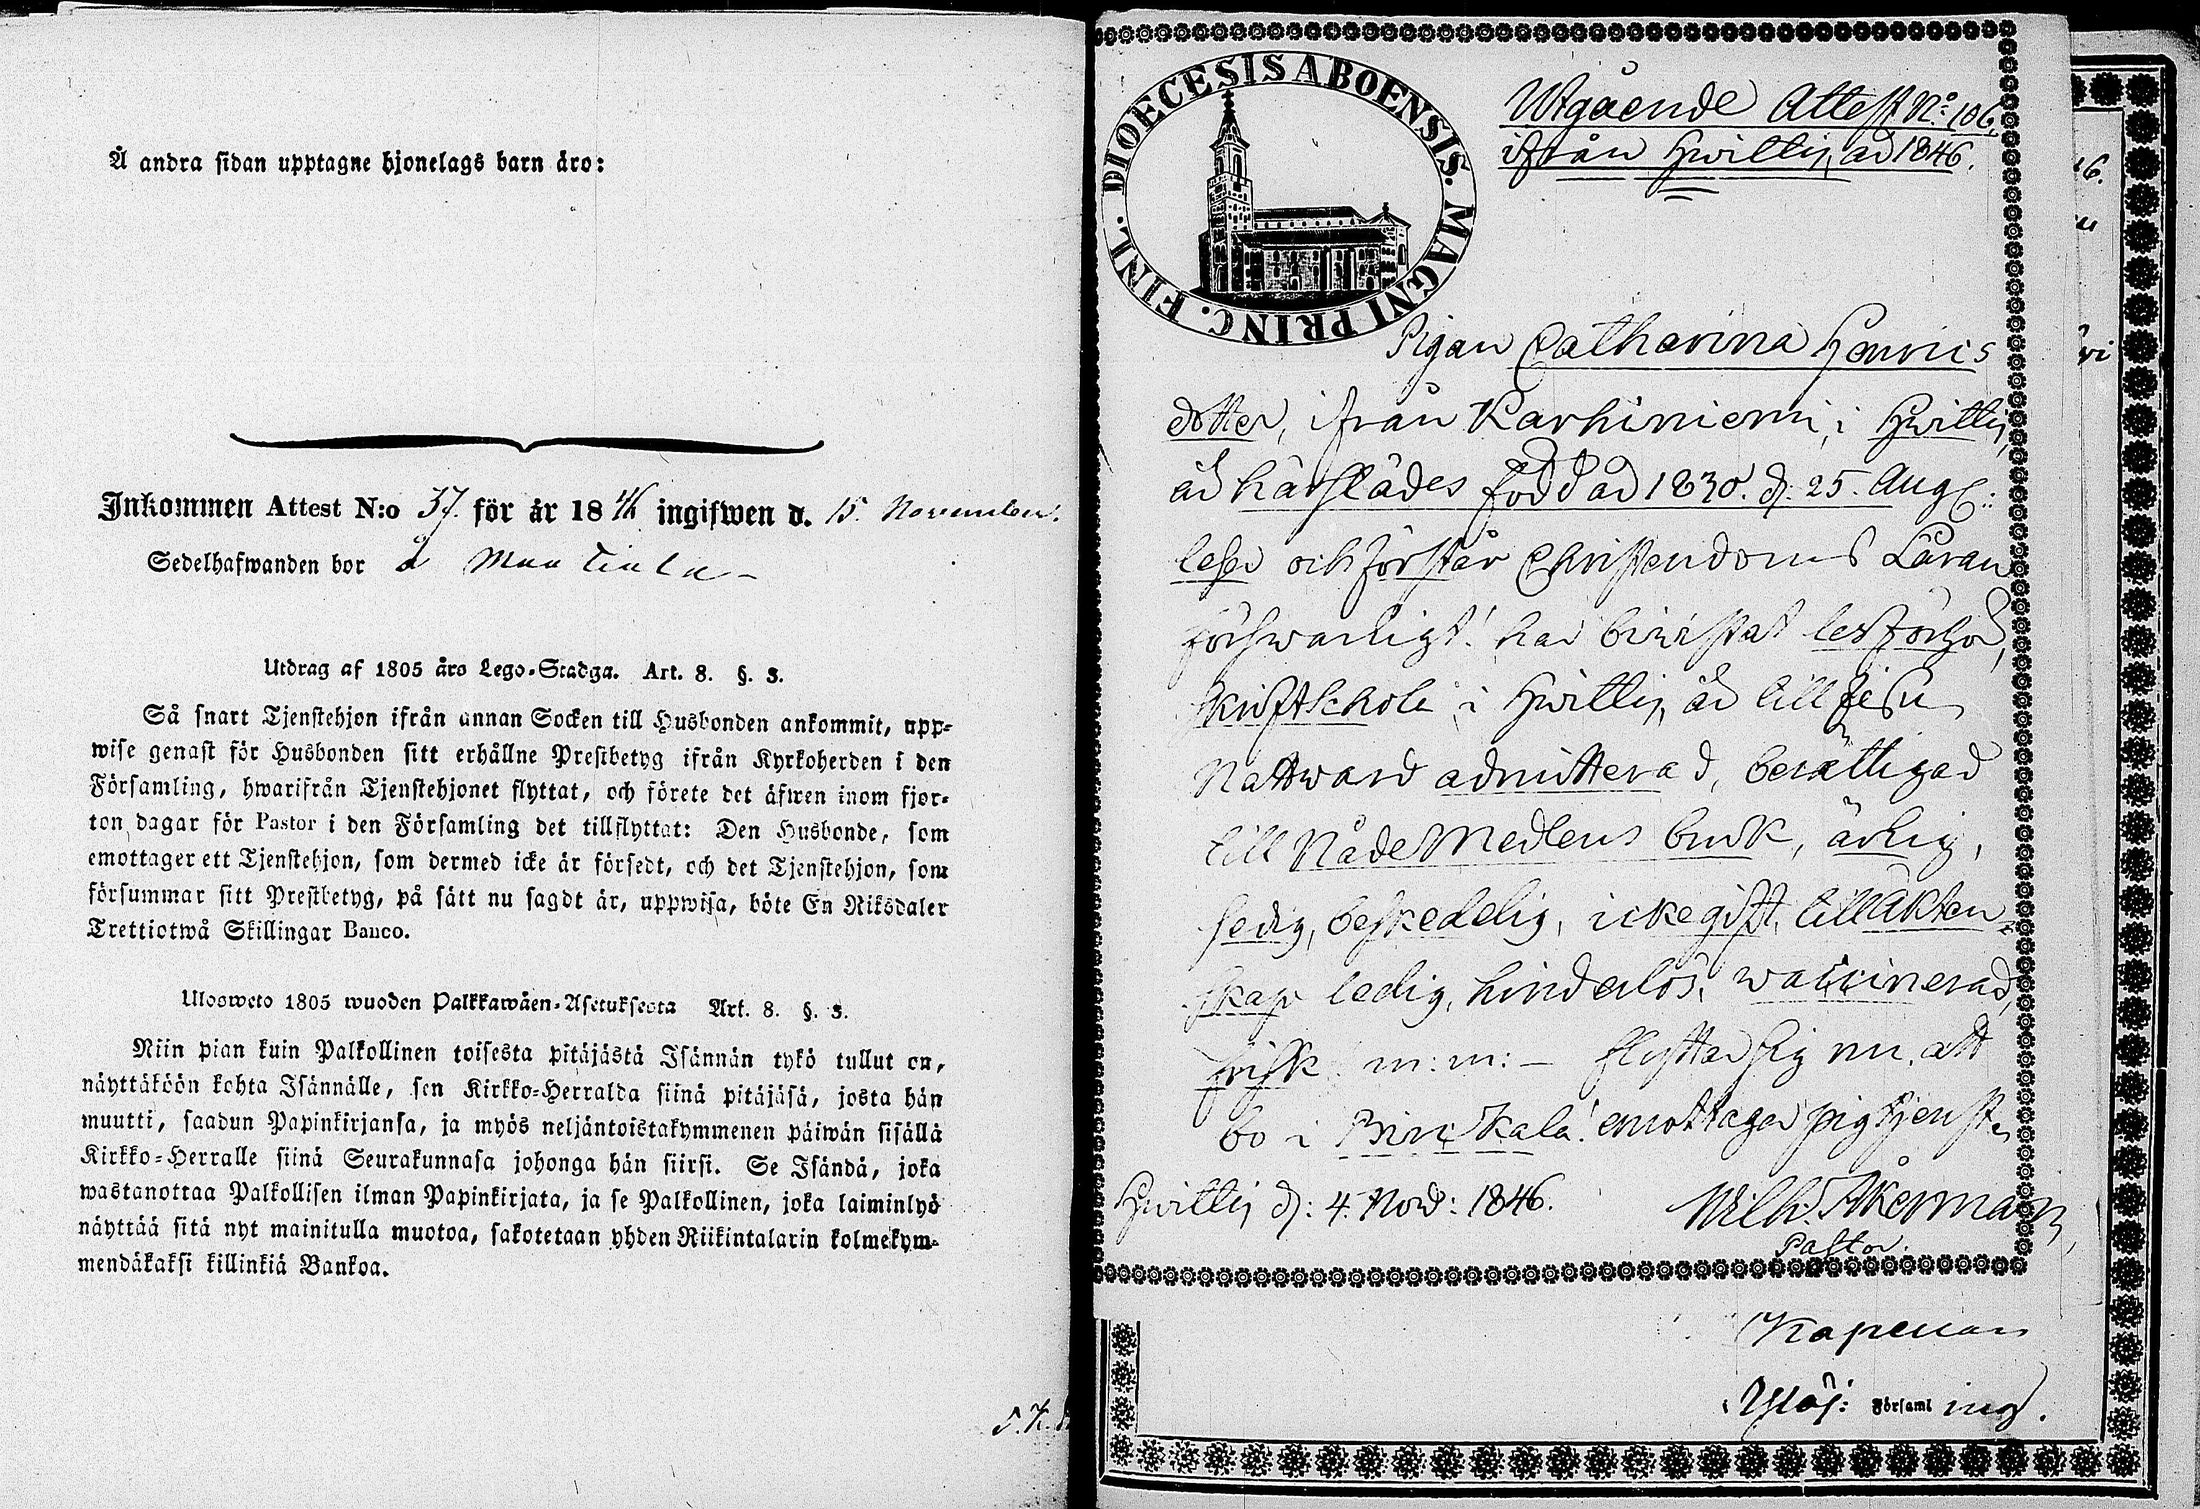 Å andra sidan upptagne hjonelags barn äro:
Inkommen Attest N:o 37. för år 1846 ingifwen d. 15. November.
Sedelhafwanden bor å Maatiala
Utdrag af 1805 års Lego-Stadga. Art. 8. §. 3.
Så snart Tjenstehjon ifrån annan Socken till Husbonden ankommit, upp-
wise genast för Husbonden sitt erhållne Prestbetyg ifrån Kyrkoherden i den
Församling, hwarifrån Tjenstehjonet flyttat, och förete det äfwen inom fjor-
ton dagar för Pastor i den Församling det tillflyttat: Den Husbonde, som
emottager ett Tjenstehjon, som dermed icke är försedt, och det Tjenstehjon, som
försummar sitt Prestbetyg, på sätt nu sagdt är, uppwisa, böte En Riksdaler
Trettiotwå Skillingar Banco.
Ulosweto 1805 wuoden Palkkawäen-Asetuksesta Art. 8. §. 3.
Niin pian kuin Palkollinen toisesta pitäjästä Isännän tykö tullut on,
näyttäköön kohta Isännälle, sen Kirkko-Herralda siinä pitäjäsä, josta hän
muutti, saadun Papinkirjansa, ja myös neljäntoistakymmenen päiwän sisällä
Kirkko-Herralle siinä Seurakunnasa johonga hän siirsi. Se Isändä, joka
wastanottaa Palkollisen ilman Papinkirjata, ja se Palkollinen, joka laiminlyö
näyttää sitä nyt mainitulla muotoa, sakotetaan yhden Riikintalarin kolmekym-
mendäkaksi killinkiä Bankoa.
DIOECESIS ABOENSIS. MAGNI PRINC. FINL.
Utgående Attest No: 106,
ifrån Hwittis, år 1846.
Pigan Catharina Henrics
dotter, ifrån Karhiniemi, i Hwittis,
är härstädes född år 1830. d: 25. Aug:
läser och förstår Christendoms Läran
försvarligt! har bivistat läsförhör,
skriftschole i Hwittis, är till Jesu
Nattward admitterad, berättigad
till NådeMedlens bruk, ärlig,
sedig, beskedelig, icke gift, till äkten-
skap ledig, hinderlös, waccinerad,
frisk m:m: – flyttar sig nu, att
bo i Birckala! emottager pigtjenst.
Hwittis d: 4. Nov: 1846. Wilh: Åkerman,
Pastor.
Kapellan
Ylöj: Församl ing.